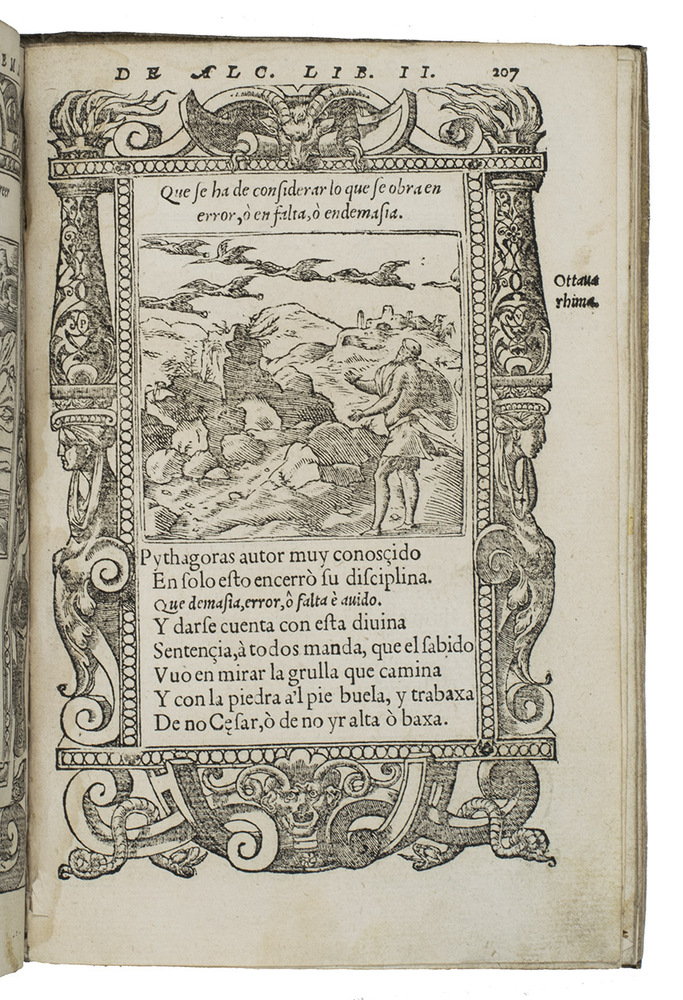 DE ALC. LIB. II. 207
Que se ha de considerar lo que se obra en
error, ò en falta, ò endemasia.
Ottaua
rhima.
Pythagoras autor muy conosçido
En solo esto encerrò su disciplina.
Que demasia, error, ô falta è auido.
Y darse cuenta con esta diuina
Sentençia, à todos manda, que el sabido
Vuo en mirar la grulla que camina
Y con la piedra a'l pie buela, y trabaxa
De no Cęsar, ò de no yr alta ò baxa.